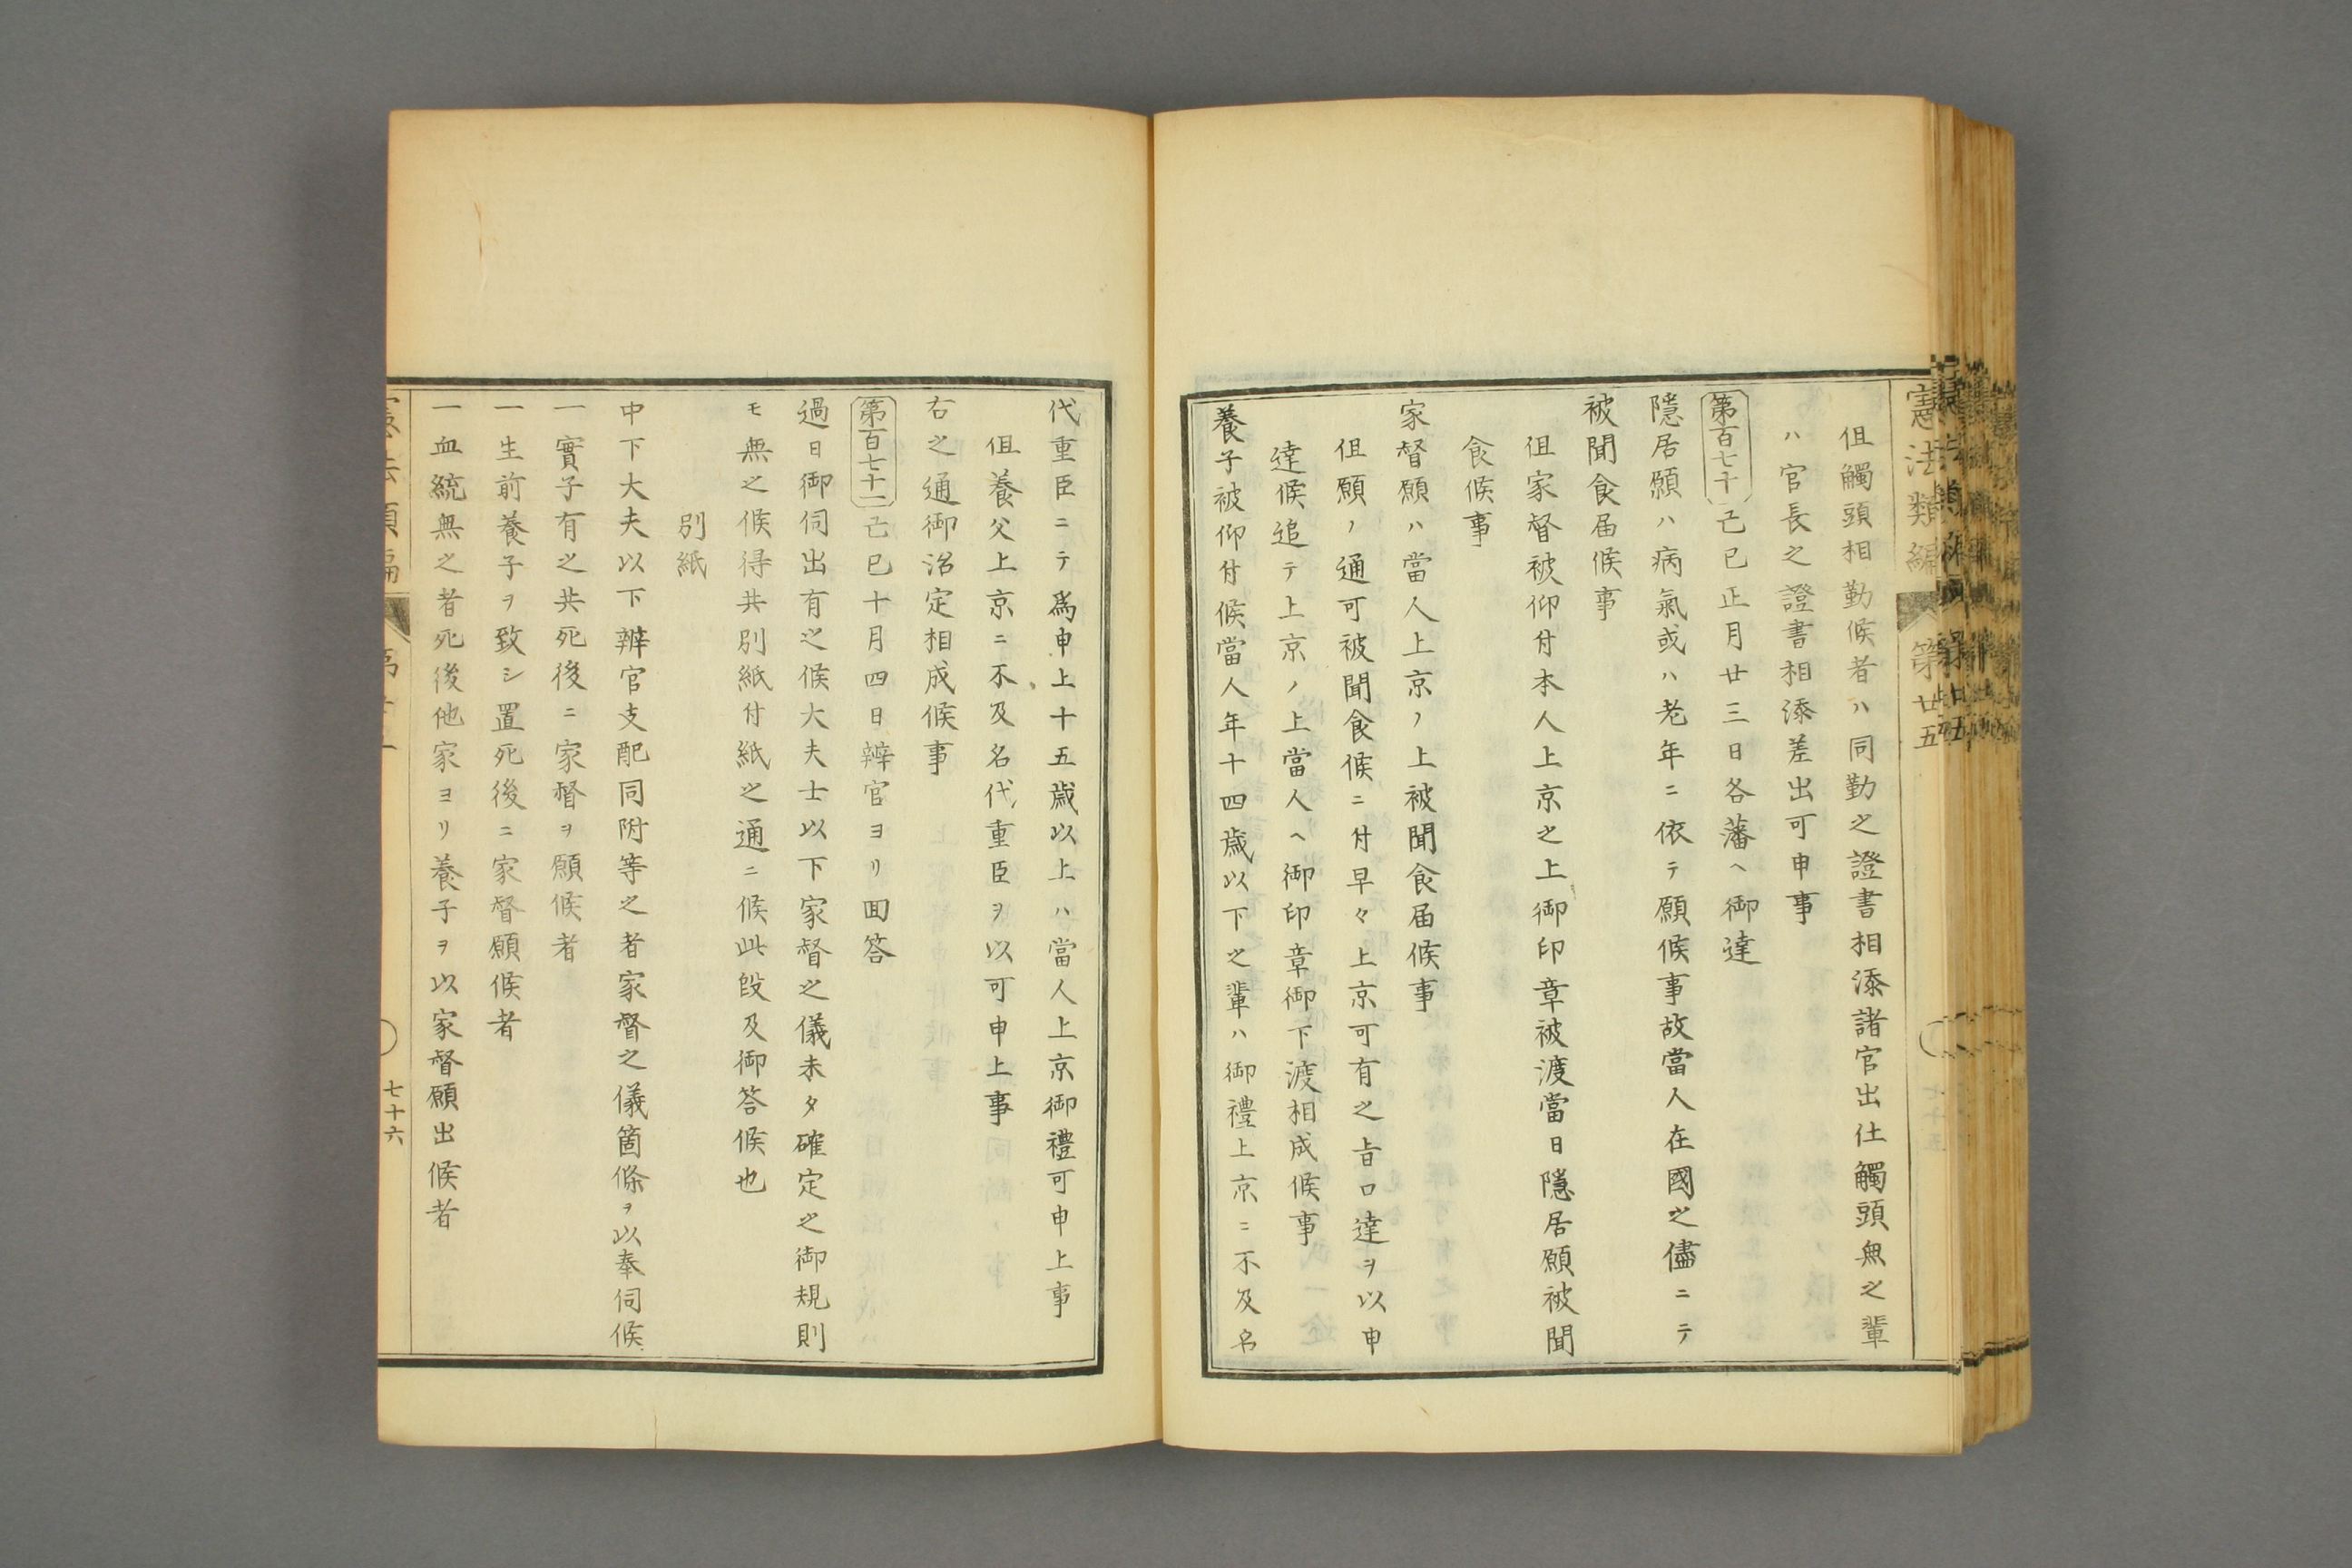 憲法類編
第廿五
但觸頭相勤候者ハ同勤之證書相添諸官出仕觸頭無之輩
ハ官長之證書相添差出可申事
第百七十己巳正月廿三日各藩ヘ御達
隱居願ハ病氣或ハ老年ニ依テ願候事故當人在國之儘ニテ
被聞食届候事
但家督被仰付本人上京之上御印章被渡當日隱居願被聞
食候事
家督願ハ當人上京ノ上被聞食届候事
但願ノ通可被聞食候ニ付早々上京可有之旨口達ヲ以申
達候追テ上京ノ上當人ヘ御印章御下渡相成候事
養子被仰付候當人年十四歳以下之輩ハ御禮上京ニ不及名
代重臣ニテ爲申上十五歳以上ハ當人上京御禮可申上事
但養父上京ニ不及名代重臣ヲ以可申上事
右之通御治定相成候事
第百七十一己巳十月四日辨官ヨリ囬答
過日御伺出有之候大夫士以下家督之儀未タ確定之御規則
モ無之候得共別紙付紙之通ニ候此段及御答候也
別紙
中下大夫以下辨官支配同附等之者家督之儀箇條ヲ以奉伺候
一實子有之共死後ニ家督ヲ願候者
一生前養子ヲ致シ置死後ニ家督願候者
一血統無之者死後他家ヨリ養子ヲ以家督願出候者
七十六